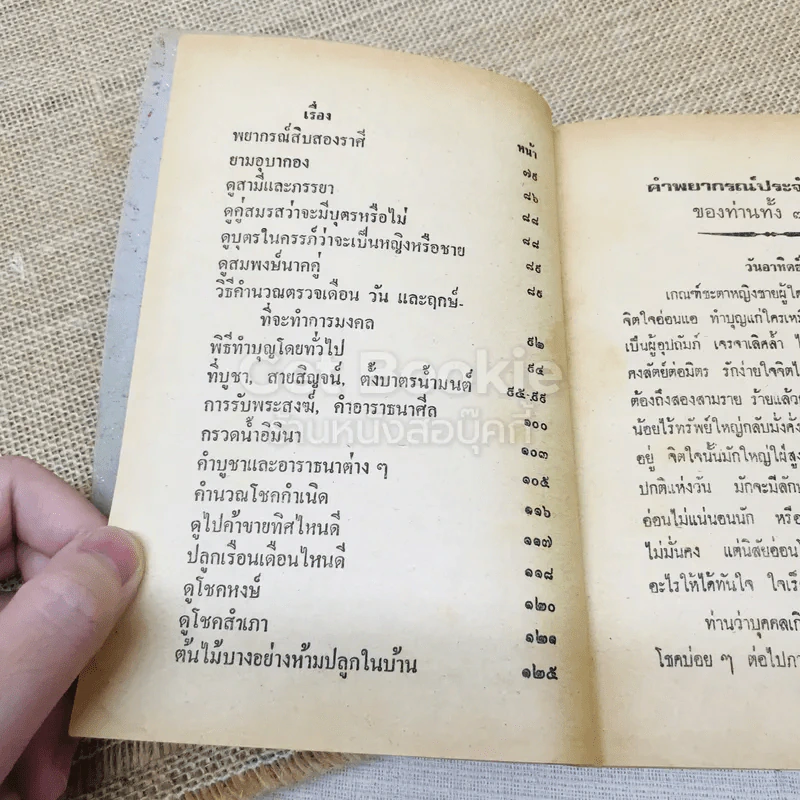 เรื่อง
หน้า
พยากรณ์สิบสองราศี ๗๙
ยามอุบากอง ๘๖
ดูสามีและภรรยา ๘๘
ดูคู่สมรสว่าจะมีบุตรหรือไม่ ๘๘
ดูบุตรในครรภ์ว่าจะเป็นหญิงหรือชาย ๘๙
ดูสมพงษ์นาคคู่ ๘๙
วิธีคำนวณตรวจเดือน วัน และฤกษ์-
ที่จะทำการมงคล ๙๒
พิธีทำบุญโดยทั่วไป ๙๔
ที่บูชา, สายสิญจน์, ตั้งบาตรน้ำมนต์ ๙๕-๙๙
การรับพระสงฆ์, คำอาราธนาศีล ๑๐๐
กรวดน้ำอิมินา ๑๐๓
คำบูชาและอาราธนาต่าง ๆ ๑๐๕
คำนวณโชคกำเนิด ๑๑๖
ดูไปค้าขายทิศไหนดี ๑๑๗
ปลูกเรือนเดือนไหนดี ๑๑๘
ดูโชคหงษ์ ๑๒๐
ดูโชคสำเภา ๑๒๑
ต้นไม้บางอย่างห้ามปลูกในบ้าน ๑๒๕
Get Bookie
ร้านหนังสือบุ๊คกี้
คำพยากรณ์ประจำ
ของท่านทั้ง ๗
วันอาทิตย์
เกณฑ์ชะตาหญิงชายผู้ใด
จิตใจอ่อนแอ ทำบุญแก่ใครเหมือ
เป็นผู้อุปถัมภ์ เจรจาเลิศล้ำ
คงสัตย์ต่อมิตร รักง่ายใจจิตไ
ต้องถึงสองสามราย ร้ายแล้ว
น้อยไร้ทรัพย์ใหญ่กลับมั่งคั่ง
อยู่ จิตใจนั้นมักใหญ่ใฝ่สูง
ปกติแห่งวัน มักจะมีลัก
อ่อนไม่แน่นอนนัก หรือ
ไม่มั่นคง แต่นิสัยอ่อนโ
อะไรให้ได้ทันใจ ใจเร็
ท่านว่าบุคคลเกิ
โชคบ่อย ๆ ต่อไปภา